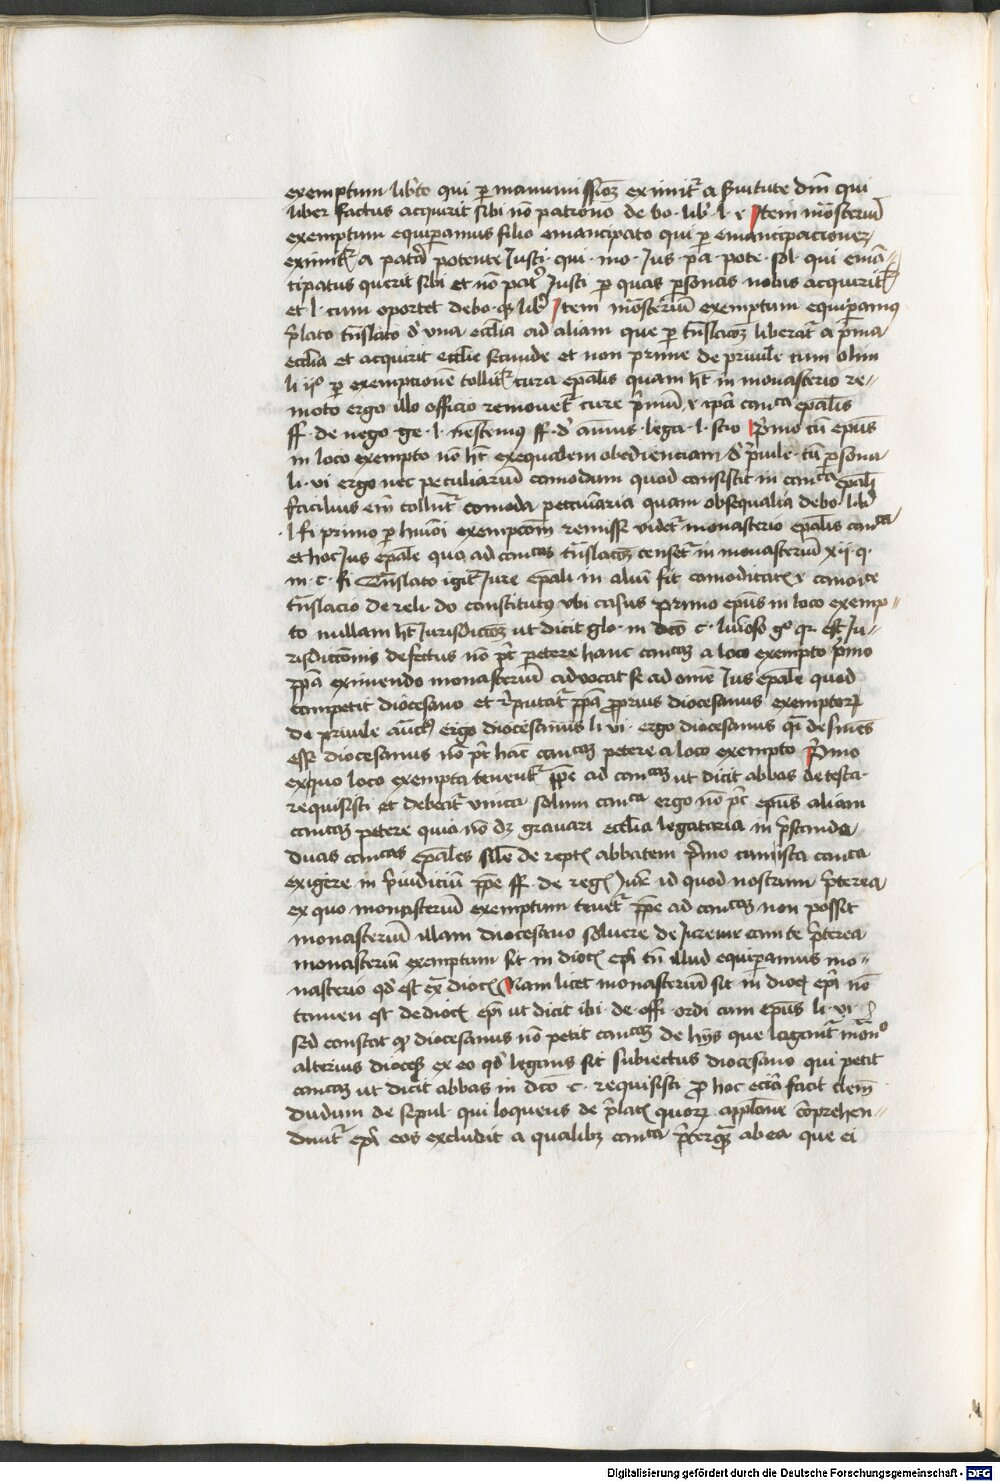 exemptum lib̄to qui ꝑ manumissioꝫ eximit᷑ a s̄uitute dn̄i qui
liber factus acquirit sibi nō patrono de bo · lib̄ · l · r Item mōsteriū
exemptum equip̄amus filio emancipato qui ꝑ emancipacionez
eximit᷑ a pat̄a potente Justi · qui · mo · Jus · pa · pote · sol · qui emā-
cipatus querit sibi et nō pat̄ Justi ꝑ quas ꝑsonas nobis acquirit᷑
et l · cum oportet de bo · q · lib̄ Item mōsteriū exemptum equip̄amus
p̄lato tn̄slato d̄ vna ecc̄lia ad aliam que ꝑ tn̄slacōꝫ liberat᷑ a p̄ma
ecc̄lia et acquirit ecc̄lie secunde et non prime de priuile cum olim
li iiº ꝑ exemptionē tollit᷑ cura ep̄alis quam h̄t in monasterio re-
moto ergo illo officio remouet᷑ cure p̄miū, r ip̄a canca ep̄alis
ff · de nego · ge · l · ff · d̄ annus · lega · l · scio p̄mo cū ep̄us
in loco exempto nō h̄t exequalem obedienciam d̄ p̄uile · cū ꝑsona
li · vi ergo nec peculiariū comodum quod consistit in canca ep̄ali
facilius em̄ tollunt᷑ comoda peccuniaria quam obsequalia de bo · lib̄
l · fi primo ꝑ hmōi exempcōem remisse videt᷑ monasterio ep̄alis canca
et hoc Jus ep̄ale quo ad cancas tn̄slacōꝫ censet᷑ in monasteriū xii · q ·
iii · c · fi Tn̄slato igit᷑ Jure ep̄ali in aliū fit comoditatis r canoīce
tn̄slacio de reli · do constitutus vbi casus primo ep̄us in loco exemp-
to nullam h̄t Jurisdictōꝫ ut dicit glo · in dc̄o c · luminoso gº qr est Ju-
risdictōnis defectus nō pt̄ petere hanc cancaꝫ a loco exempto p̄mo
pp̄a eximendo monasteriū aduocat se ad omē Jus ep̄ale quod
competit diocesano et r̄putat᷑ pp̄a ꝓprius diocesanus exemptoꝝ
de priuile ergo diocesanus li vi · ergo diocesanus q̄ desines
esse diocesanus nō pt̄ hāc cancaꝫ petere a loco exempto p̄mo
exquo loco exempta tenent᷑ pp̄e ad cancaꝫ ut dicit abbas de testa ·
requisisti et debeat᷑ vnica solum canca ergo nō pt̄ ep̄us aliam
cancaꝫ petere quia nō dꝫ grauari ecc̄lia legataria in p̄stando
duas cancas ep̄ales sil̄e de rept̄ abbatem p̄mo iniusta canca
exigere in p̄iudiciū pp̄e ff · de reḡ Jur̄ id quod nostrum p̄terea
ex quo monasteriū exemptum tenet᷑ pp̄e ad cancaꝫ non possit
monasteriū illam diocesano soluere de Jureiur cum te p̄terea
monasteriū exemptum sit in dioc̄ ep̄i tn̄ illud equip̄amus mo-
nasterio qd̄ est ex̄ dioc̄ Nam licet monasteriū sit in dioc̄ ep̄i nō
tamen est de dioc̄ ep̄i ut dicit ibi de offi · ordi cum ep̄us li · vi ·
sed constat ꝙ diocesanus nō petit cancaꝫ de hijs que legant᷑ mōnº
alterius dioces̄ ex eo qd̄ legans sit subiectus diocesano qui petit
cancaꝫ ut dicit abbas in dc̄o c · requisisti ꝓ hoc eciā facit clem̄
dudum de sepul · qui loquens de p̄latis quoꝝ applōne cōprehen-
dunt᷑ ep̄i eos excludit a qualibꝫ canca p̄terꝗ̄ ab ea que ei
Digitalisierung gefördert durch die Deutsche Forschungsgemeinschaft - DFG